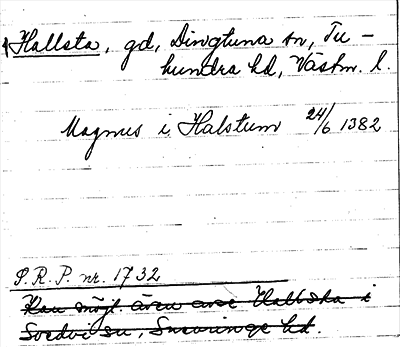 Hallsta, gd, Dingtuna sn, Tu-
hundra hd, Västm. l.
Magnus i Halstum 24/6 1382
S.R.P. nr. 1732
Kan möjl. även avse Hallsta i
Svedvi sn, Snevringe hd.